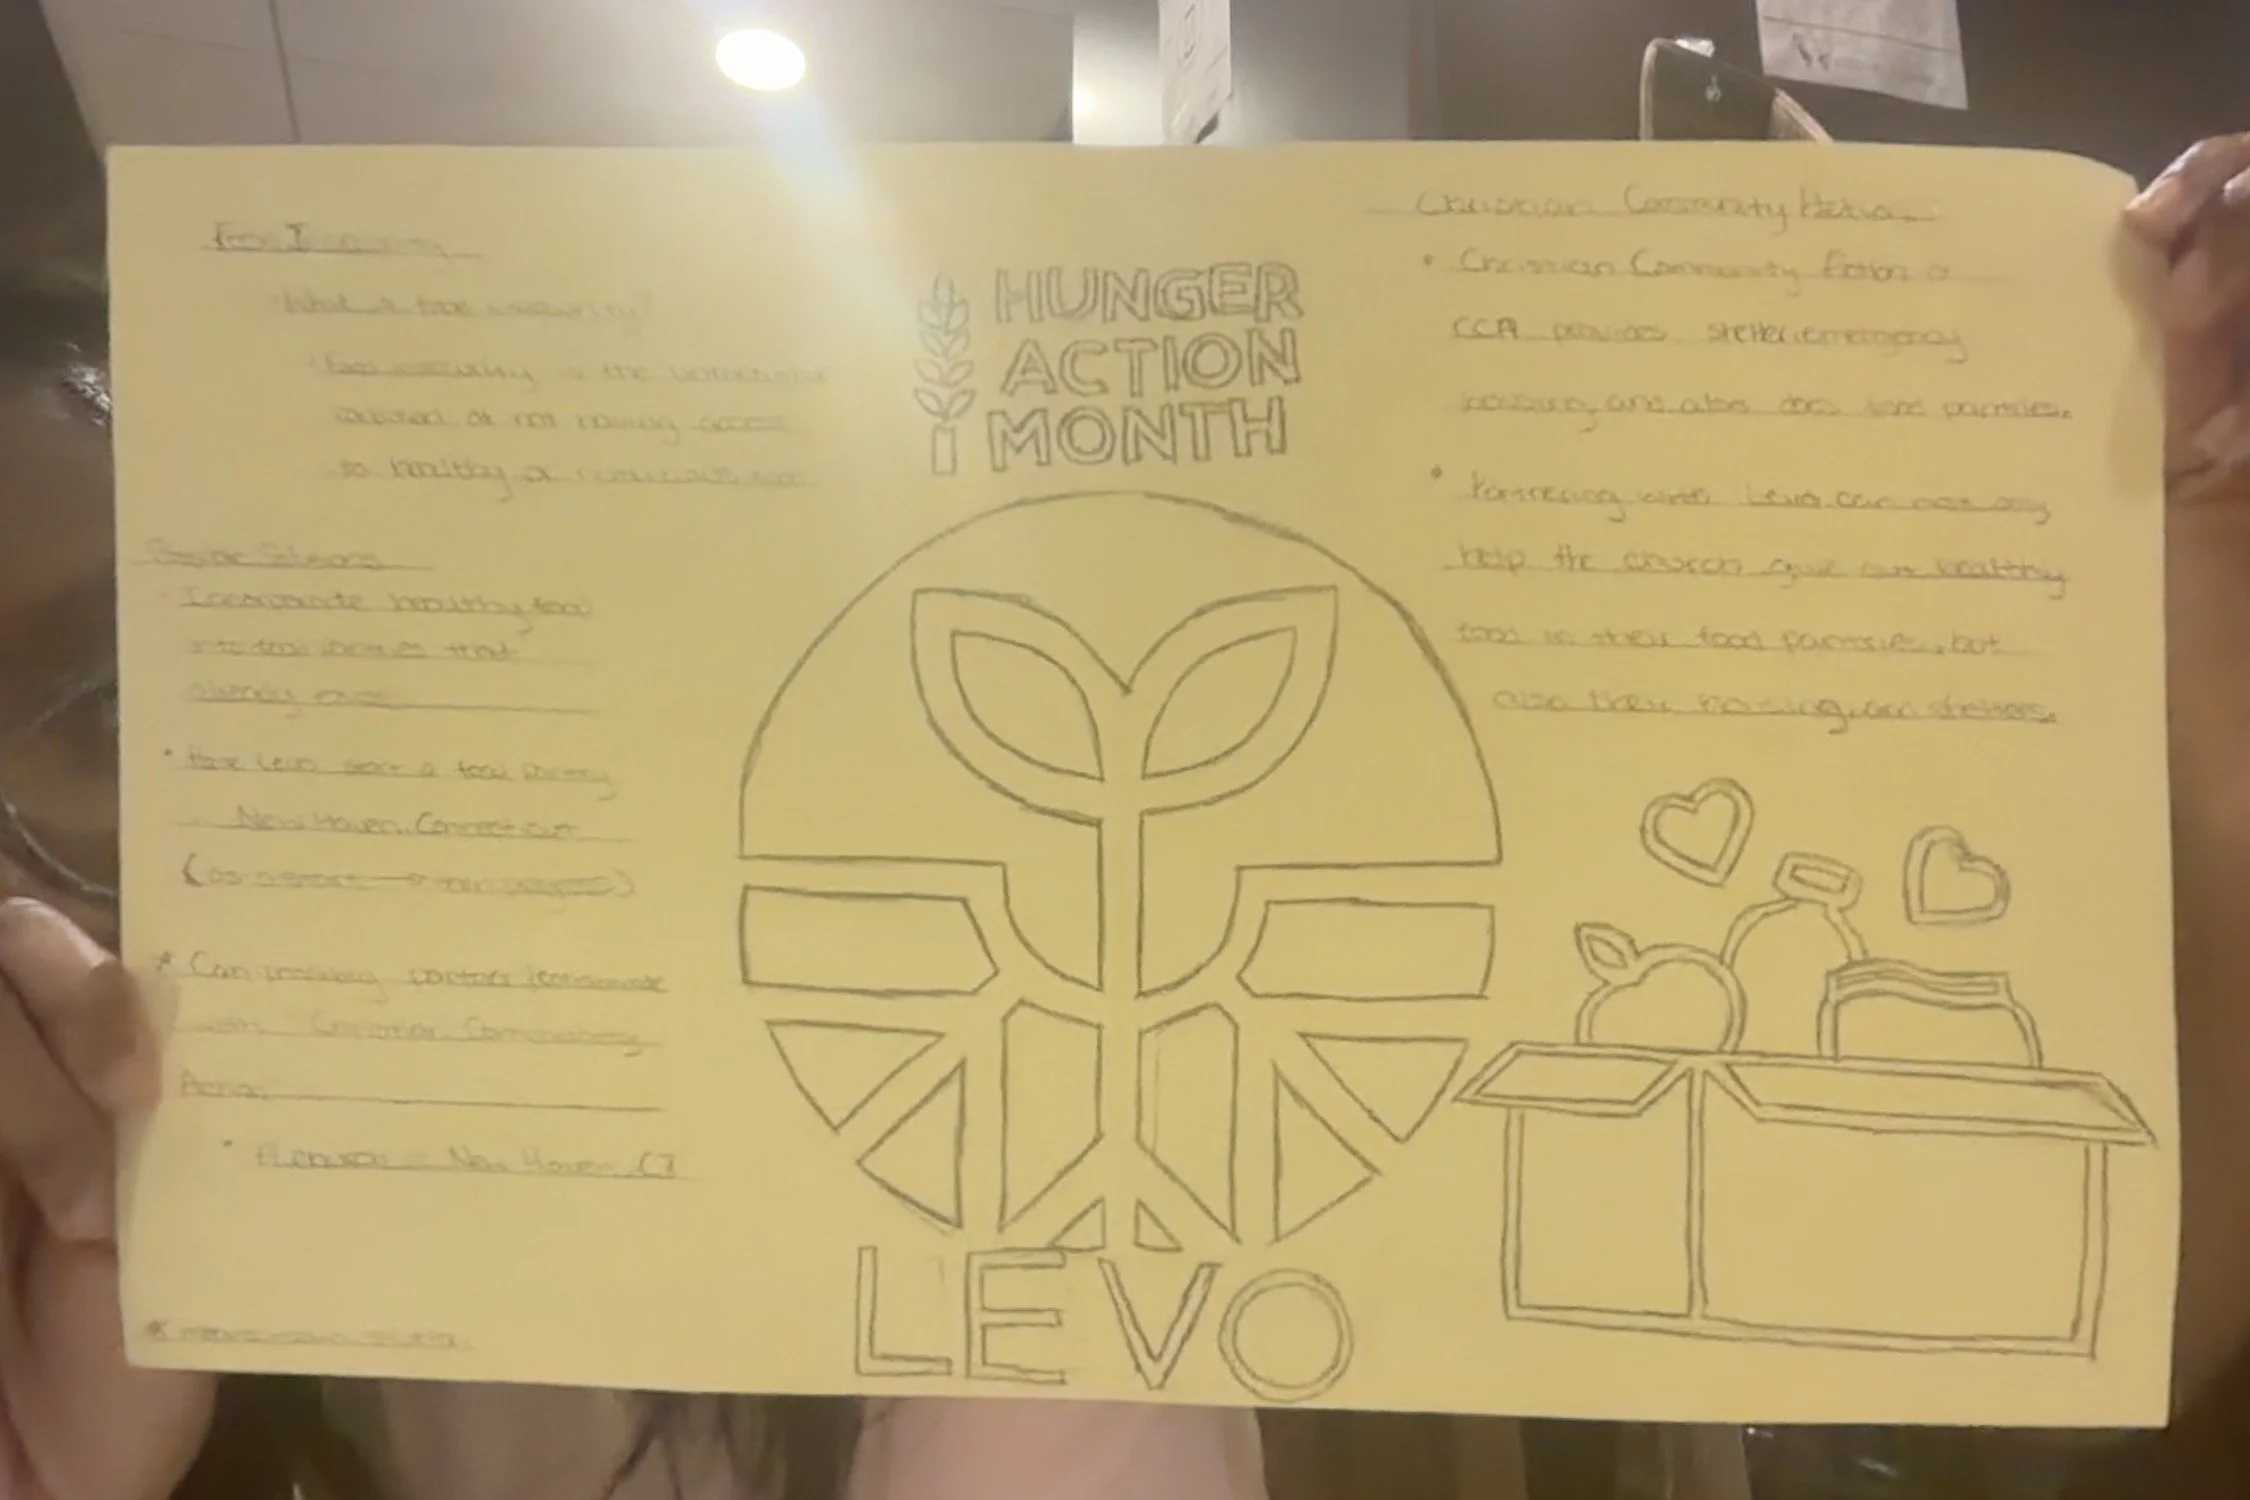 Food Insecurity
What is food insecurity?
Food insecurity is the unfortunate
of not having access
to healthy or nutritious food
Possible Solutions
• Incorporate healthy food
into food pantries that
already exist
• Have Levo start a food pantry
New Haven, Connecticut
(as a start →
* Can possibly partner
with Christian Community
Action
• A church in New Haven, CT
HUNGER
ACTION
MONTH
LEVO
Christian Community Action
• Christian Community Action or
CCA provides shelter, emergency
housing, and also does food pantries.
• Partnering with Levo can not only
help the church give out healthy
food in their food pantries, but
also their housing and shelters.